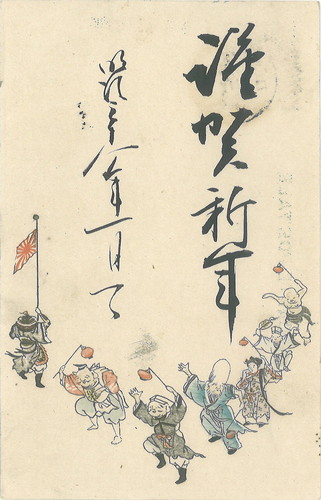 謹賀新年
明治三十八年一月一日